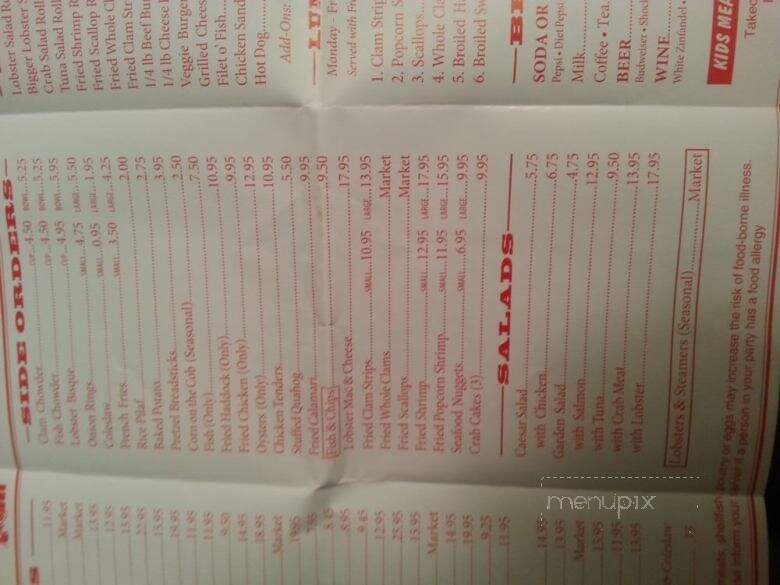 11.95
Market
Market
13.95
12.95
13.95
22.95
15.95
19.95
11.95
11.95
9.50
14.95
18.95
Market
8.95
9.45
12.95
25.95
15.95
Market
14.95
19.95
9.25
11.95
14.95
13.95
Market
15.95
11.95
13.95
Coleslaw
SIDE ORDERS
Clam Chowder CUP 4.50 BOWL 5.25
Fish Chowder CUP 4.50 BOWL 5.25
Lobster Bisque CUP 4.95 BOWL 5.95
Onion Rings SMALL 4.75 LARGE 5.50
Coleslaw SMALL 0.95 LARGE 1.95
French Fries SMALL 3.50 LARGE 4.25
Rice Pilaf 2.00
Baked Potato 2.75
Pretzel Breadsticks 3.95
Corn on the Cob (Seasonal) 2.50
Fish (Only) 7.50
Fried Haddock (Only) 10.95
Fried Chicken (Only) 9.95
Oysters (Only) 12.95
Chicken Tenders 10.95
Stuffed Quahog 5.50
Fried Calamari 9.95
Fish & Chips 9.50
Lobster Mac & Cheese 17.95
Fried Clam Strips SMALL 10.95 LARGE 13.95
Fried Whole Clams Market
Fried Scallops Market
Fried Shrimp SMALL 12.95 LARGE 17.95
Fried Popcorn Shrimp SMALL 11.95 LARGE 15.95
Seafood Nuggets SMALL 6.95 LARGE 9.95
Crab Cakes (3) 9.95
SALADS
Caesar Salad 5.75
with Chicken 6.75
Garden Salad 4.75
with Salmon 12.95
with Tuna 9.50
with Crab Meat 13.95
with Lobster 17.95
Lobsters & Steamers (Seasonal) Market
shellfish or eggs may increase the risk of food-borne illness.
inform your server if a person in your party has a food allergy
Lobster Salad Ro
Bigger Lobster S
Crab Salad Roll
Tuna Salad Roll
Fried Shrimp R
Fried Scallop R
Fried Whole C
Fried Clam Str
1/4 lb Beef Bur
1/4 lb Cheese
Veggie Burger
Grilled Chees
Filet o' Fish
Chicken Sand
Hot Dog
Add-Ons:
LUN
Monday - Fr
Served with Fre
1. Clam Strip
2. Popcorn S
3. Scallops
4. Whole Cla
5. Broiled Ha
6. Broiled Sw
BE
SODA OR
Pepsi • Diet Pepsi
Milk
Coffee • Tea
BEER
Budweiser • Shock
WINE
White Zinfandel •
KIDS MEA
Takeo
menupix